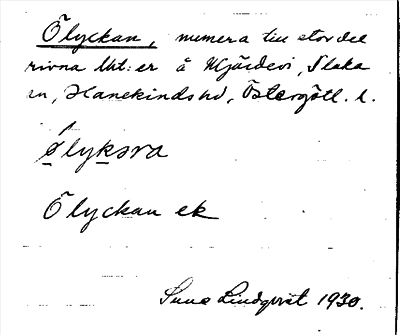 Ölyckan, numera till stor del
rivna lht:er å Mjärdevi, Slaka
sn, Hanekinds hd, Östergötl. l.
Ølyksra
Ölyckan ek
Sune Lindqvist 1930.